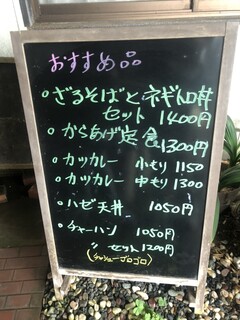 おすすめ品
・ざるそばとネギトロ丼
セット 1400円
・からあげ定食
1300円
・カツカレー 小もり 1150
・カツカレー 中もり 1300
・ハゼ天丼 1050円
・チャーハン 1050円
〃 セット 1200円
(チャシューゴロゴロ)